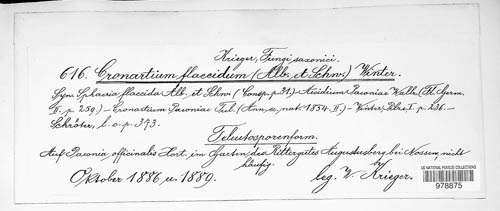 Krieger, Fungi saxonici.
616. Cronartium flaccidum (Alb. et Schw.) Winter.
Syn. Sphaeria flaccida Alb. et Schw. (Consp. p. 31.) – Aecidium Paeoniae Wallr. (Fl. Germ.
II. p. 259.) – Cronartium Paeoniae Tul. (Ann. s. nat. 1854. II.) – Winter, Rbh. I. p. 236. –
Schröter, l. c. p. 373.
Teleutosporenform.
Auf Paeonia officinalis Hort. im Garten des Rittergutes Augustusberg bei Nossen, nicht
häufig.
Oktober 1886 u. 1889.
leg. W. Krieger.
US NATIONAL FUNGUS COLLECTIONS
978875